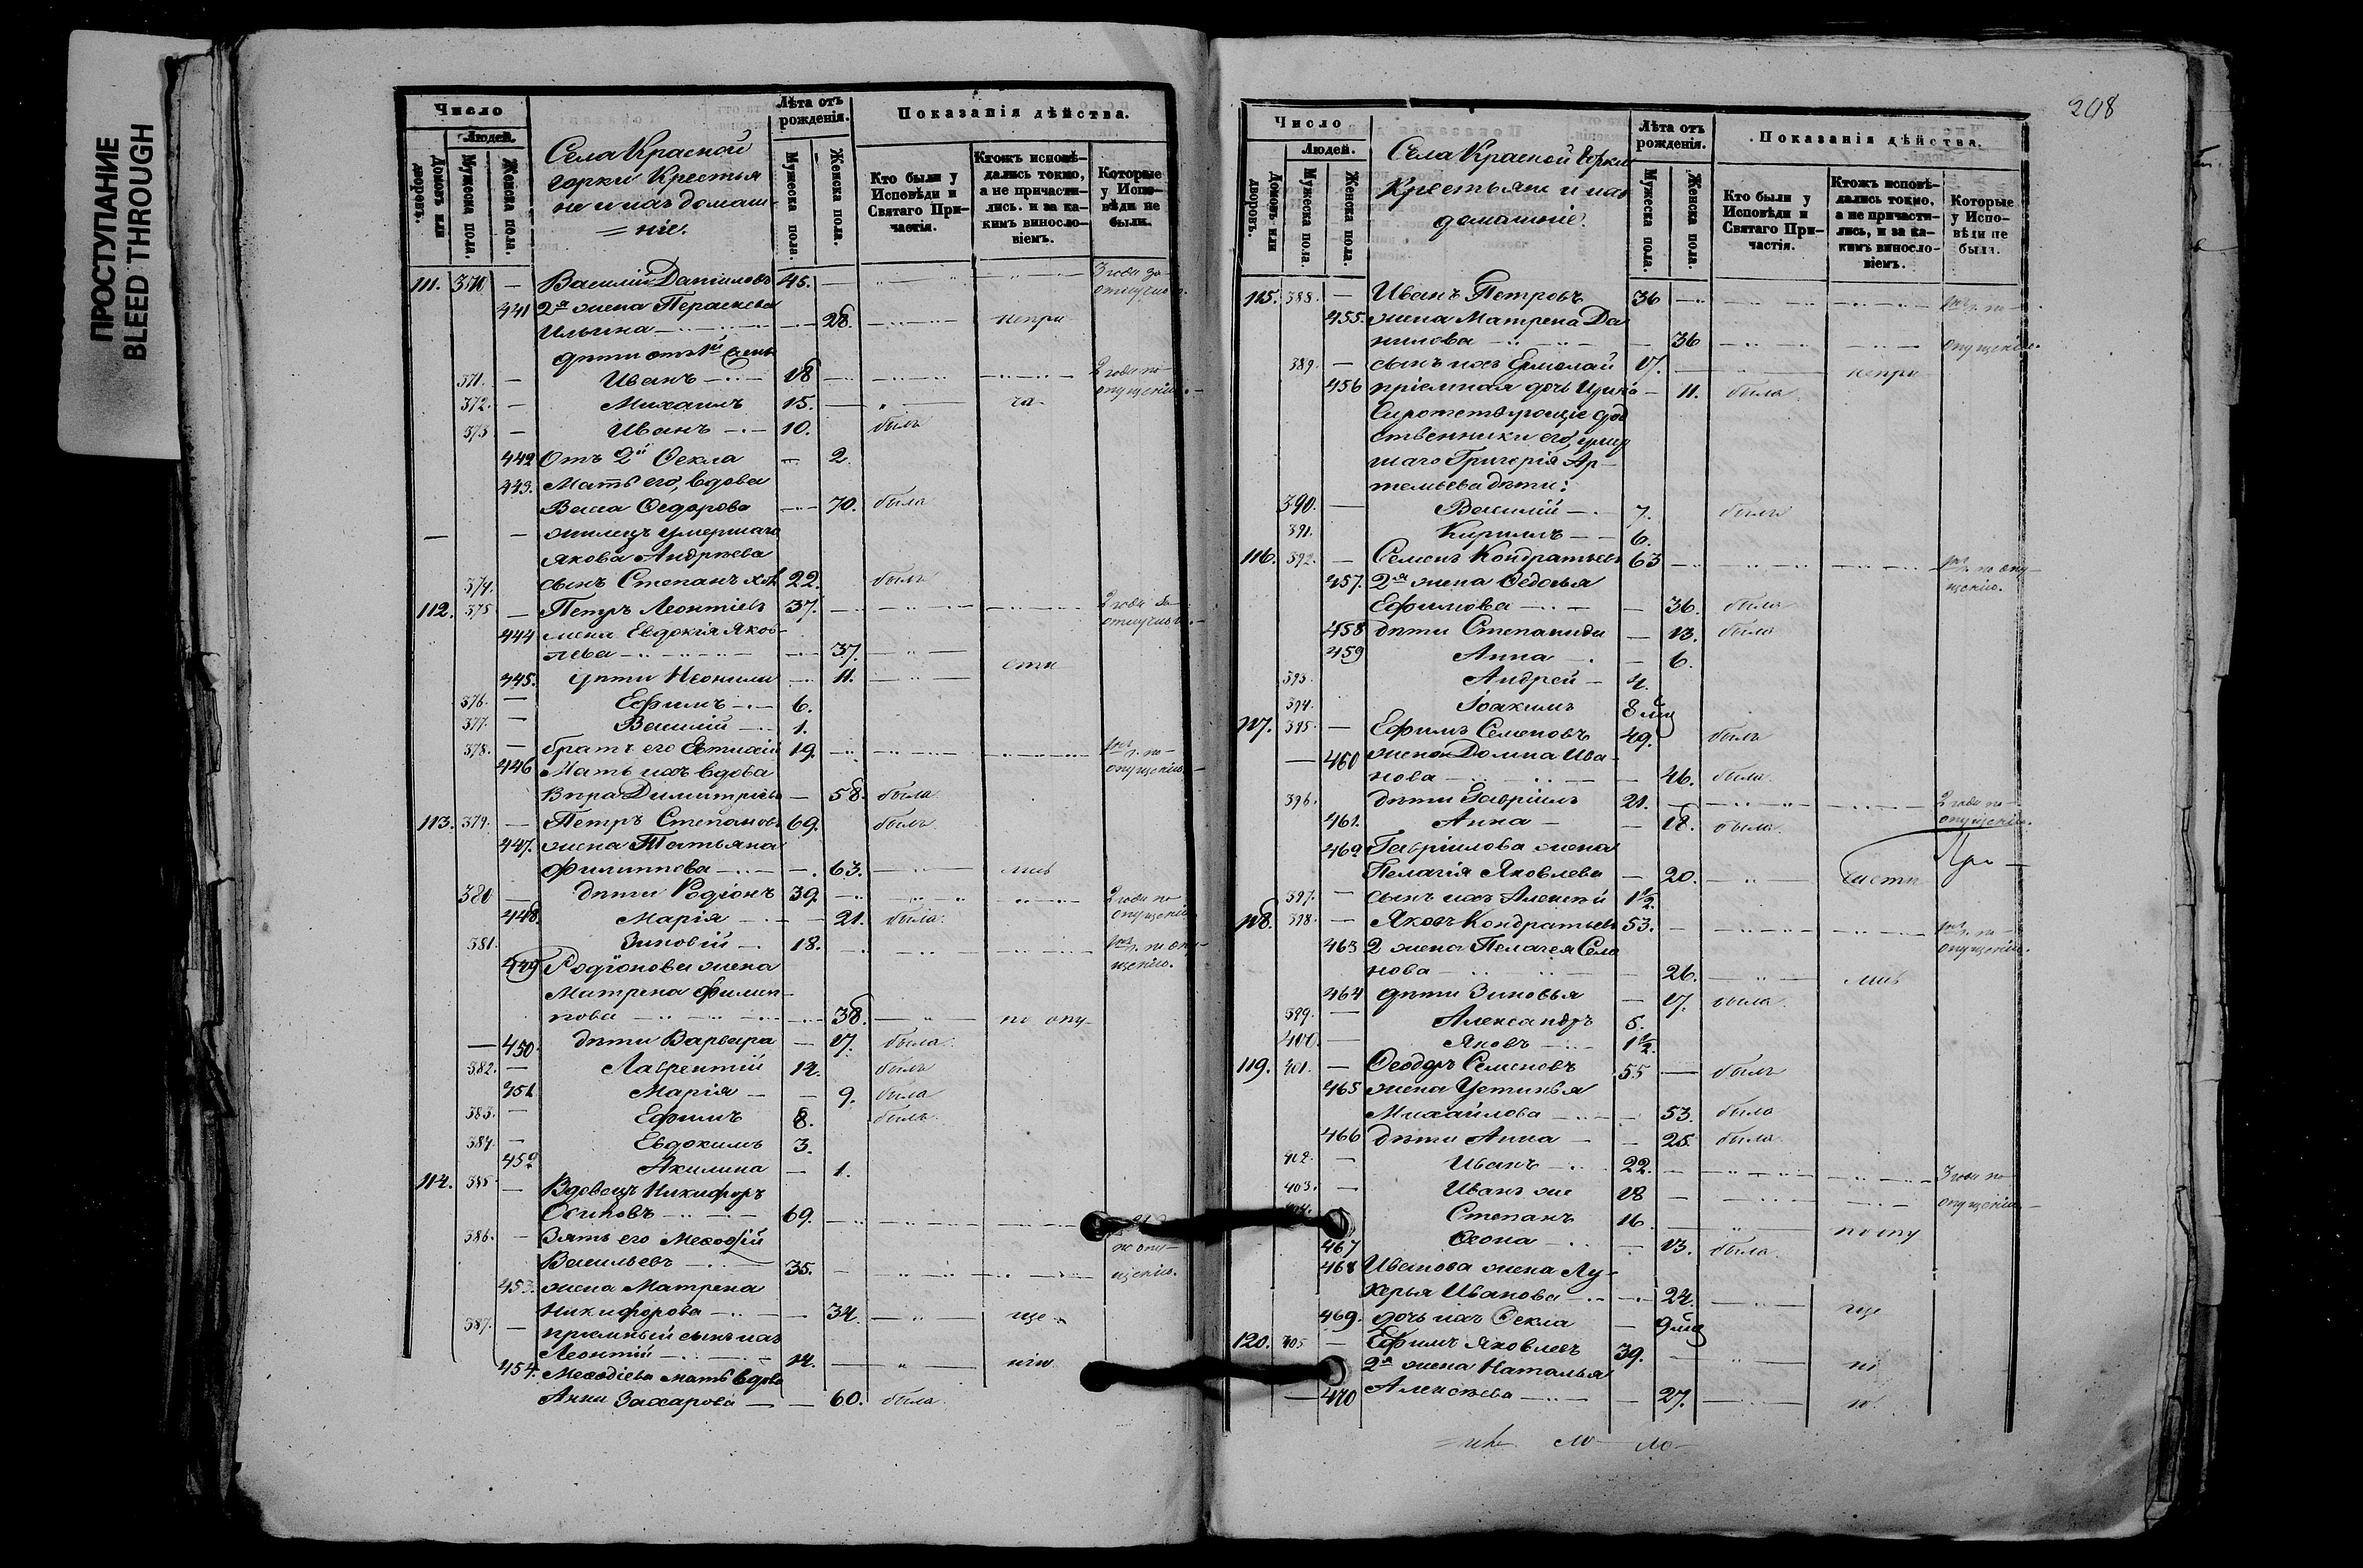 ПРОСТУПАНИЕ
BLEED THROUGH
Число
Людей.
Домовъ или дворовъ.
Мужеска пола.
Женска пола.
Села Красной
горки Крестья
не и ихъ домаш-
=ніе.
Лѣта отъ рожденія.
Мужеска пола.
Женска пола.
Показанія дѣйства.
Кто были у Исповѣди и Святаго При-частія.
Ктожъ исповѣ-дались токмо, а не причасти-лись. и за ка-кимъ винословіемъ.
Которые у Испо-вѣди не были.
111. 370 — Василій Даниловъ 45. — 3 года за
отлучкою.
441 2я жена Пераскева
Ильина — 28. — непри
дѣти отъ 1й жены
371. — Иванъ — 18 — 2 года по
опущенію.
372. — Михаилъ 15. — ча
373 — Иванъ — 10. былъ
442 Отъ 2й Ѳекла — 2.
443. Мать его, вдова
Васса Ѳедорова — 70. была
— — жилецъ умершаго
Якова Андреева
374. сынъ Степанъ хол 22. былъ
112. 375 — Петръ Леонтіевъ 37. — 2 года за
отлучкою.
444 жена Евдокія Яков-
лева — 37. —
сти
445. дѣти Неонила — 11. —
376. — Ефимъ — 6.
377. — Василій — 1.
378. — братъ его Евтихій 19. — 1нъ г. по
опущенію.
446 Мать ихъ вдова
Вѣра Димитріева — 58. была
113. 379. — Петръ Степановъ 69. былъ
447. жена Татьяна
Филиппова — 63. — лись
380 — дѣти Родіонъ 39. — 2 года по
опущенію
448. Марія — 21. была
381. Зиновій — 18. — 1нъ г. по опу-
щенію.
449 Родіонова жена
Матрена Филип-
пова — 38. — по опу-
— 450. дѣти Варвара — 17. была
382. — Лаврентій 12. былъ
451 Марія — 9. была
383. — Ефимъ 8. былъ
384. — Евдокимъ 3.
452 Акилина — 1.
114. 385 — Вдовецъ Никифоръ
Осиповъ — 69. —
386. — Зять его Меѳодій
Васильевъ — 35. — по опу-
щенію.
453. жена Матрена
Никифорова — 34. — ще
387. — пріемный сынъ ихъ
Леонтій — 14. — нію
454. Меѳодіева мать вдова
Анна Захарова — 60. была
208
Число
Людей.
Домовъ или дворовъ.
Мужеска пола.
Женска пола.
Села Красной Горки
Крестьяне и ихъ
домашніе.
Лѣта отъ рожденія.
Мужеска пола.
Женска пола.
Показанія дѣйства.
Кто были у Исповѣди и Святаго При-частія.
Ктожъ исповѣ-дались токмо, а не причасти-лись, и за ка-кимъ винословіемъ.
Которые у Испо-вѣди не были.
115. 388. — Иванъ Петровъ 36 — 1нъ г. по
455. жена Матрена Да
нилова — 36 — опущенію.
389. — сынъ ихъ Ермолай 17. — непри
456 пріемная дочь Ирина — 11. была
Сиротствующіе род
ственники его, умер
шаго Григорія Ар-
темьева дѣти:
390. — Василій — 7. былъ
391. Кирилъ — 6.
116. 392. — Семенъ Кондратьевъ 63 — 1нъ г. по опу-
щенію.
457. 2я жена Ѳедосья
Ефимова — 36. была
458 дѣти Степанида — 13. была
459 Анна — 6.
393. Андрей — 4.
394. Іоакимъ 8 мц
117. 395. — Ефимъ Семеновъ 49. былъ
— 460 жена Домна Ива-
нова — 46. была
396. дѣти Гавріилъ 21. — 2 года по
опущенію.
461. Анна — 18. была
462 Гавріилова жена
Пелагія Яковлева — 20. — части При
397. — сынъ ихъ Алексѣй 1½.
118. 398. — Яковъ Кондратьевъ 53. — 1нъ г. по
опущенію.
463 2 жена Пелагея Семе
нова — 26. — лись
464 дѣти Зиновья — 17. была
399. — Александръ 5.
400. — Яковъ — 1½.
119. 401. — Ѳеодоръ Семеновъ 55 — былъ
465 жена Устинья
Михайлова — 53. была
466 дѣти Анна — 25. была
402. — Иванъ — 22. — 3 года по
403. — Иванъ же 18 — опущенію
404. Степанъ 16. — по опу
467 Ѳеона — 13. была
468 Иванова жена Лу-
керья Иванова — 24. — ще
469. дочь ихъ Ѳекла — 9 мц
120. 405 — Ефимъ Яковлевъ 39. — ні
2я жена Наталья
— 470 Алексѣева — 27. —